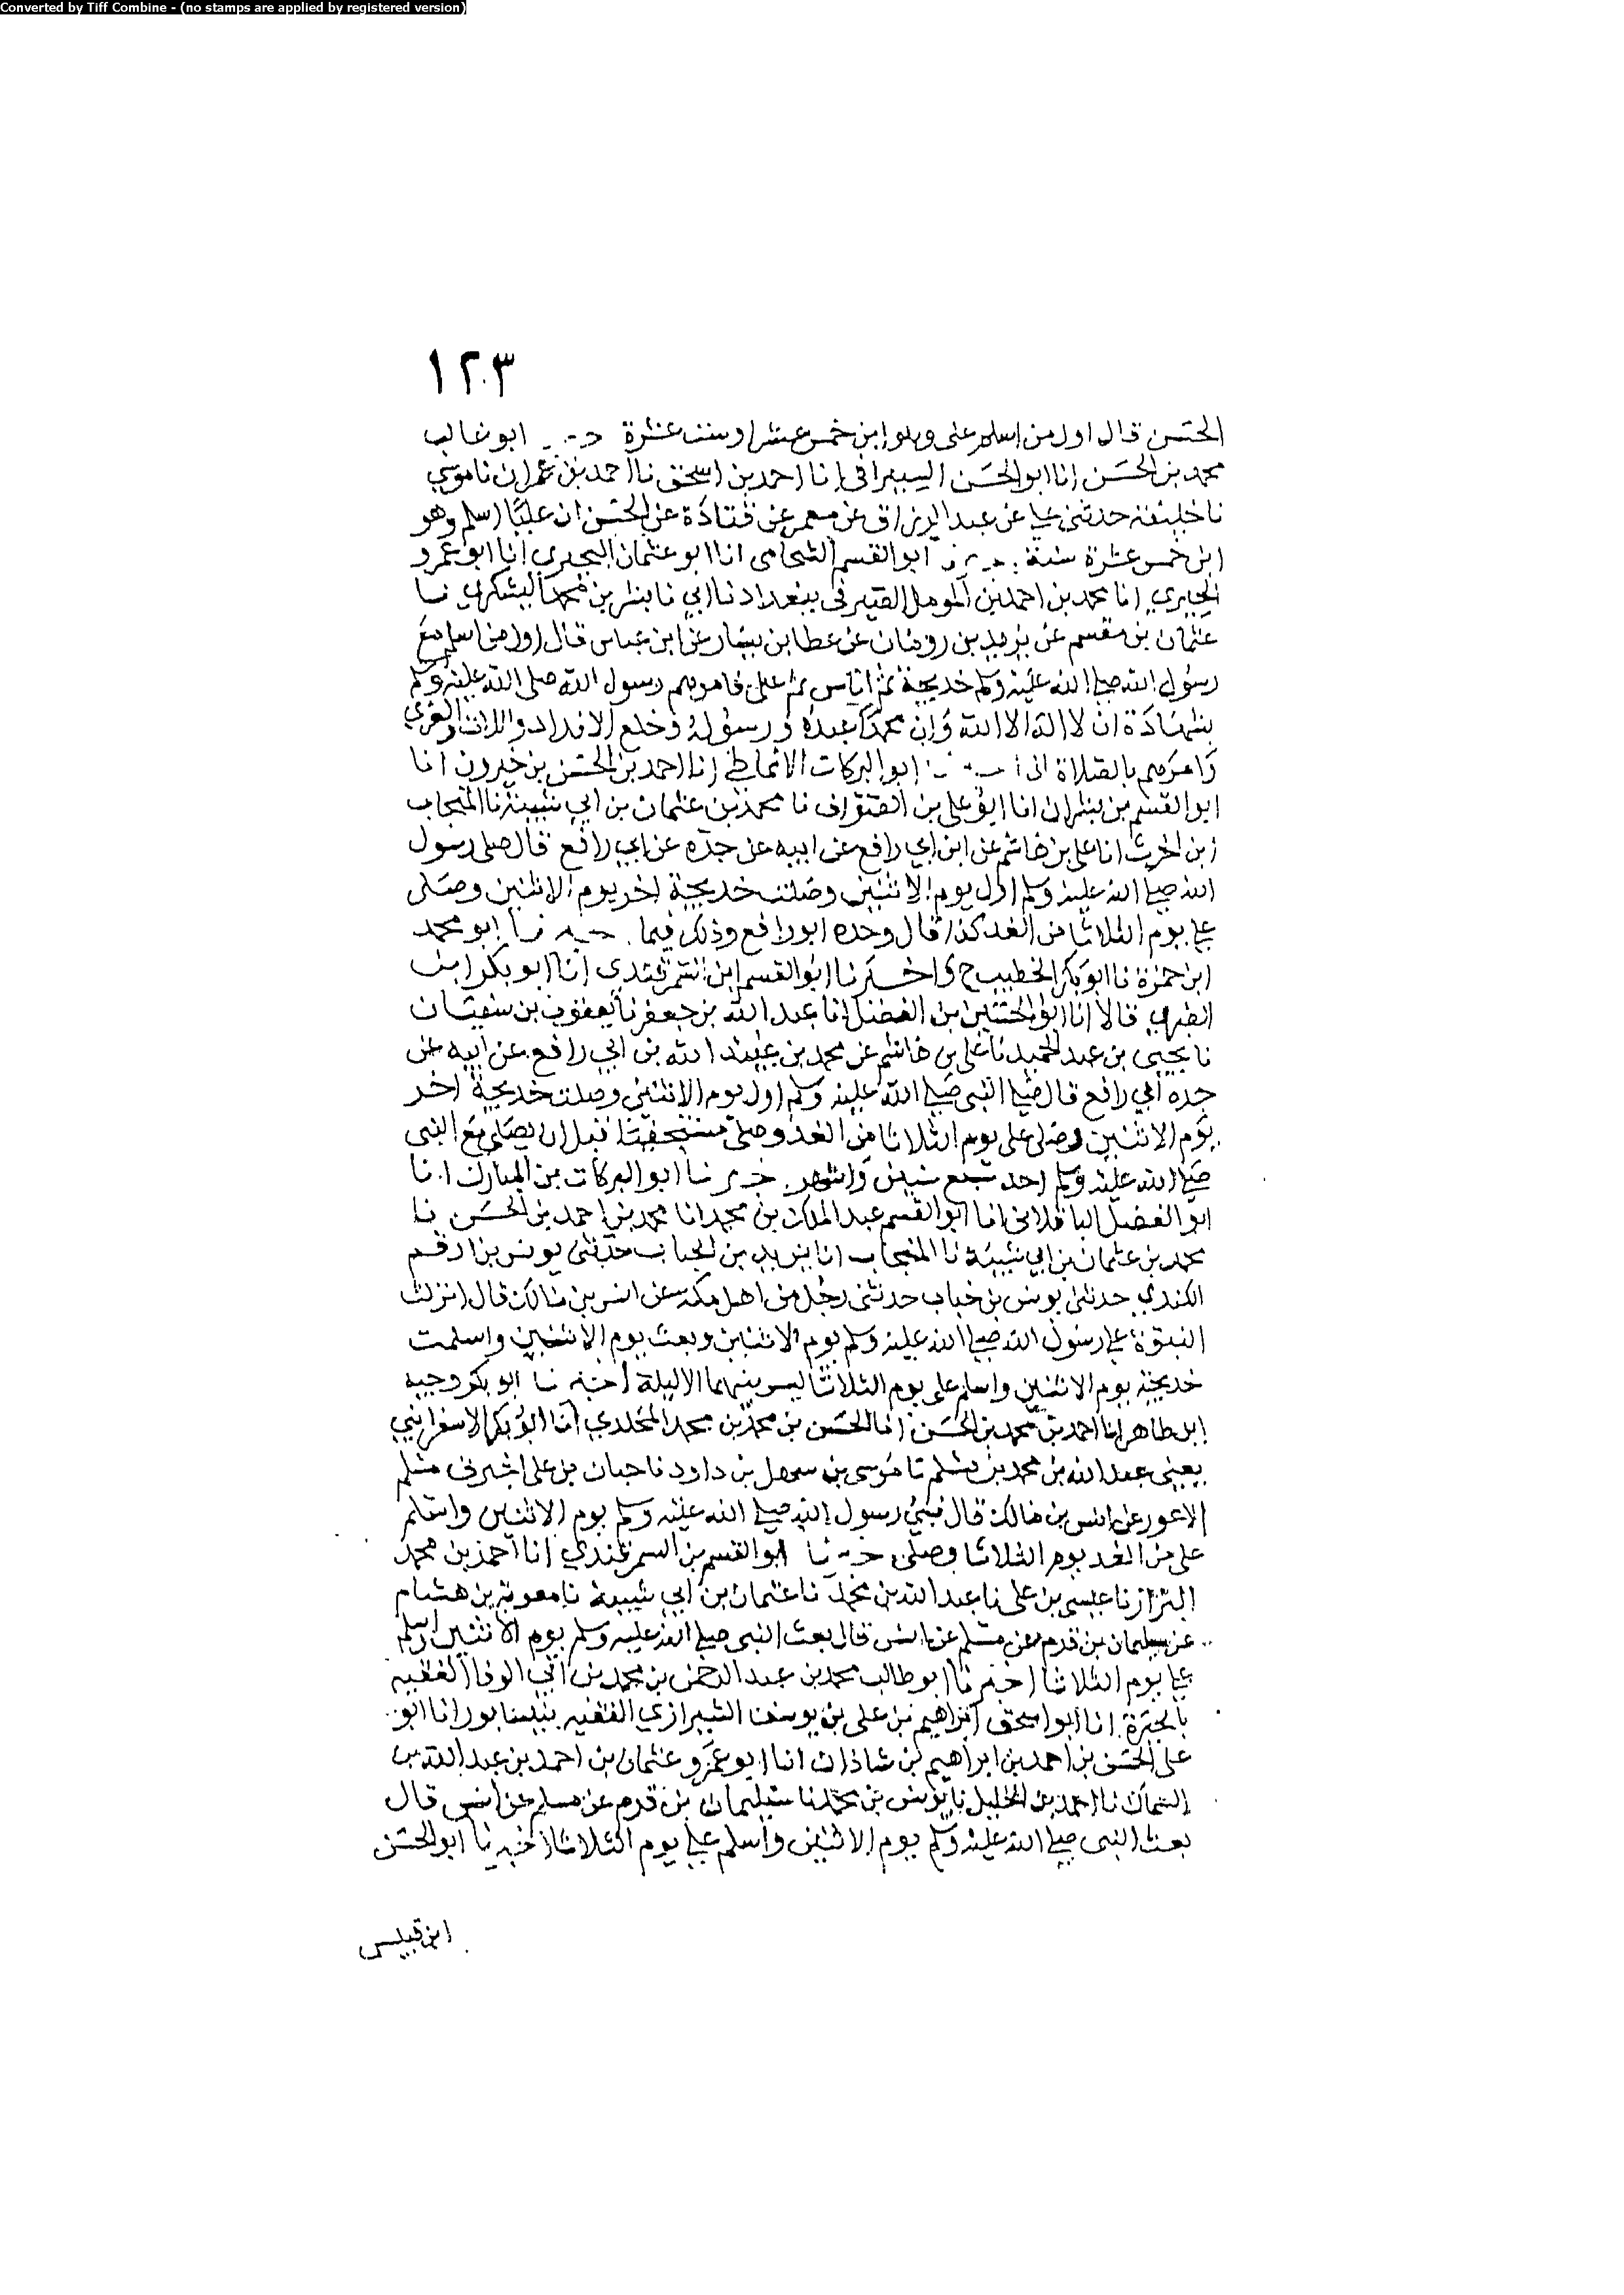 Converted by Tiff Combine - (no stamps are applied by registered version)
١٢٠٣
الحسن قال اول من اسلم على وهو ابن خمس عشر او ست عشرة ابو غالب
محمد بن الحسن انا ابو الحسن السيرافى انا احمد بن اسحق نا احمد بن عمران نا موسي
نا خليفة حدثنى علي عن عبد الرزاق عن معمر عن قتادة عن الحسن ان عليا اسلم وهو
ابن خمس عشرة سنة ابو القسم الشحامى انا ابو عثمان البحيري انا ابو عمرو
الحيري انا محمد بن احمد بن المومل الصيرفى ببغداد نا ابي نا بشر بن محمد اليشكري نا
عثمان بن مقسم عن يزيد بن رومان عن عطا بن يسار عن ابن عباس قال اول من اسلم مع
رسول الله صلى الله عليه وسلم خديجة ثم اناس ثم على فامرهم رسول الله صلى الله عليه وسلم
بشهادة ان لا اله الا الله وان محمدا عبده ورسوله وخلع الانداد واللات والعزي
وامرهم بالصلاة ابو البركات الانماطي انا احمد بن الحسن بن خيرون انا
ابو القسم بن بشران انا ابو على بن الصواف نا محمد بن عثمان بن ابي شيبة نا المنجاب
بن الحرث انا على بن هاشم عن ابن ابي رافع عن ابيه عن جده عن ابي رافع قال صلى رسول
الله صلى الله عليه وسلم اول يوم الاثنين وصلت خديجة اخر يوم الاثنين وصلى
علي يوم الثلاثا من الغد كذا قال وحده ابو رافع وذلك فيما نا ابو محمد
ابن حمزة نا ابو بكر الخطيب ح واخبرنا ابو القسم ابن السمرقندي انا ابو بكر ابن
الطبري قالا انا ابو الحسين بن الفضل انا عبد الله بن جعفر نا يعقوب بن سفيان
نا يحيى بن عبد الحميد نا على بن هاشم عن محمد بن عبيد الله بن ابي رافع عن ابيه عن
جده ابي رافع قال صلى النبى صلى الله عليه وسلم اول يوم الاثنين وصلت خديجة اخر
يوم الاثنين وصلى على يوم الثلاثا من الغد وصلى مستخفيا قبل ان يصلى مع النبى
صلى الله عليه وسلم احد سبع سنين واشهر نا ابو البركات بن المبارك انا
ابو الفضل الباقلانى انا ابو القسم عبد الملك بن محمد انا محمد بن احمد بن الحسن نا
محمد بن عثمان بن ابي شيبة نا المنجاب انا يزيد بن الحباب حدثنى يونس بن ارقم
الكندي حدثنى يونس بن خباب حدثنى رجل من اهل مكة عن انس بن مالك قال انزلت
النبوة علي رسول الله صلى الله عليه وسلم يوم الاثنين وبعث يوم الاثنين واسلمت
خديجة يوم الاثنين واسلم على يوم الثلاثا ليس بينهما الا ليلة اخبرنا ابو بكر وجيه
ابن طاهر انا احمد بن محمد بن الحسن انا الحسن بن محمد بن محمد المخلدي انا ابو بكر الاسفرايني
يعنى عبد الله بن محمد بن مسلم نا موسى بن سهل بن داود نا حبان بن على اخبرنى مسلم
الاعور عن انس بن مالك قال نبئ رسول الله صلى الله عليه وسلم يوم الاثنين واسلم
على من الغد يوم الثلاثا وصلى نا ابو القسم بن السمرقندي انا احمد بن محمد
البزاز نا عيسى بن على نا عبد الله بن محمد نا عثمان بن ابي شيبة نا معوية بن هشام
عن سليمان بن قرم عن مسلم عن انس قال بعث النبى صلى الله عليه وسلم يوم الاثنين واسلم
علي يوم الثلاثا اخبرنا ابو طالب محمد بن عبد الرحمن بن محمد بن ابي الوفا الفقيه
بالحيرة انا ابو اسحق ابراهيم بن على بن يوسف الشيرازي الفقيه بنيسابور انا ابو
على الحسن بن احمد بن ابراهيم بن شاذان انا ابو عمرو عثمان بن احمد بن عبد الله بن
السماك نا احمد بن الخليل نا يونس بن محمد نا سليمان بن قرم عن مسلم عن انس قال
بعث النبى صلى الله عليه وسلم يوم الاثنين واسلم علي يوم الثلاثا اخبرنا ابو الحسن
ابن قبيس